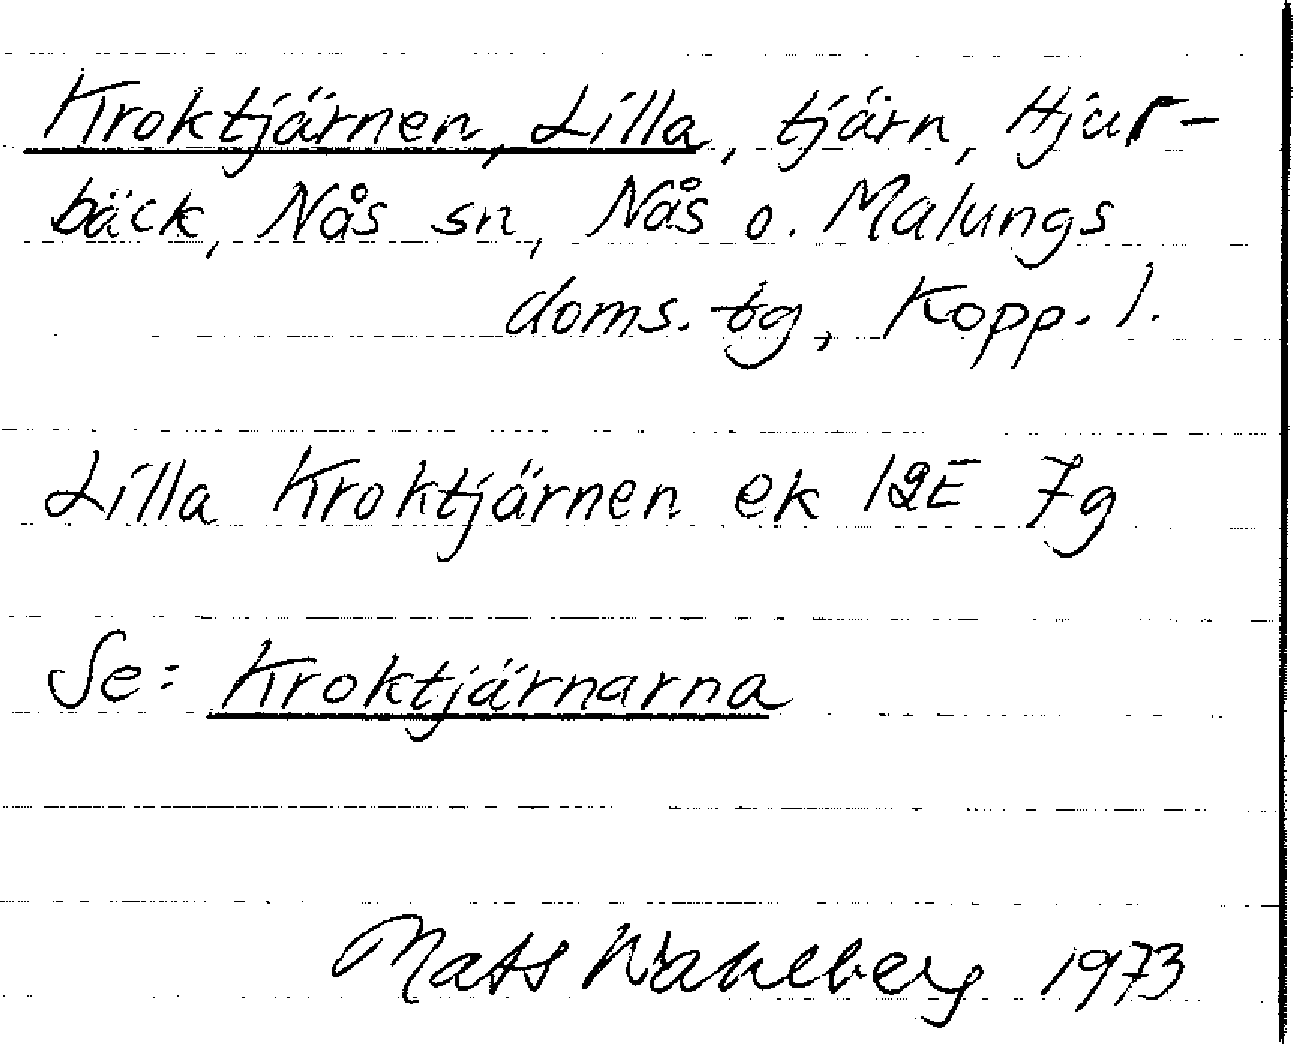 Kroktjärnen, Lilla, tjärn, Hjur-
bäck, Nås sn, Nås o. Malungs
doms. tg, Kopp. l.
Lilla Kroktjärnen ek 12E 7g
Se: Kroktjärnarna
Mats Wahlberg 1973